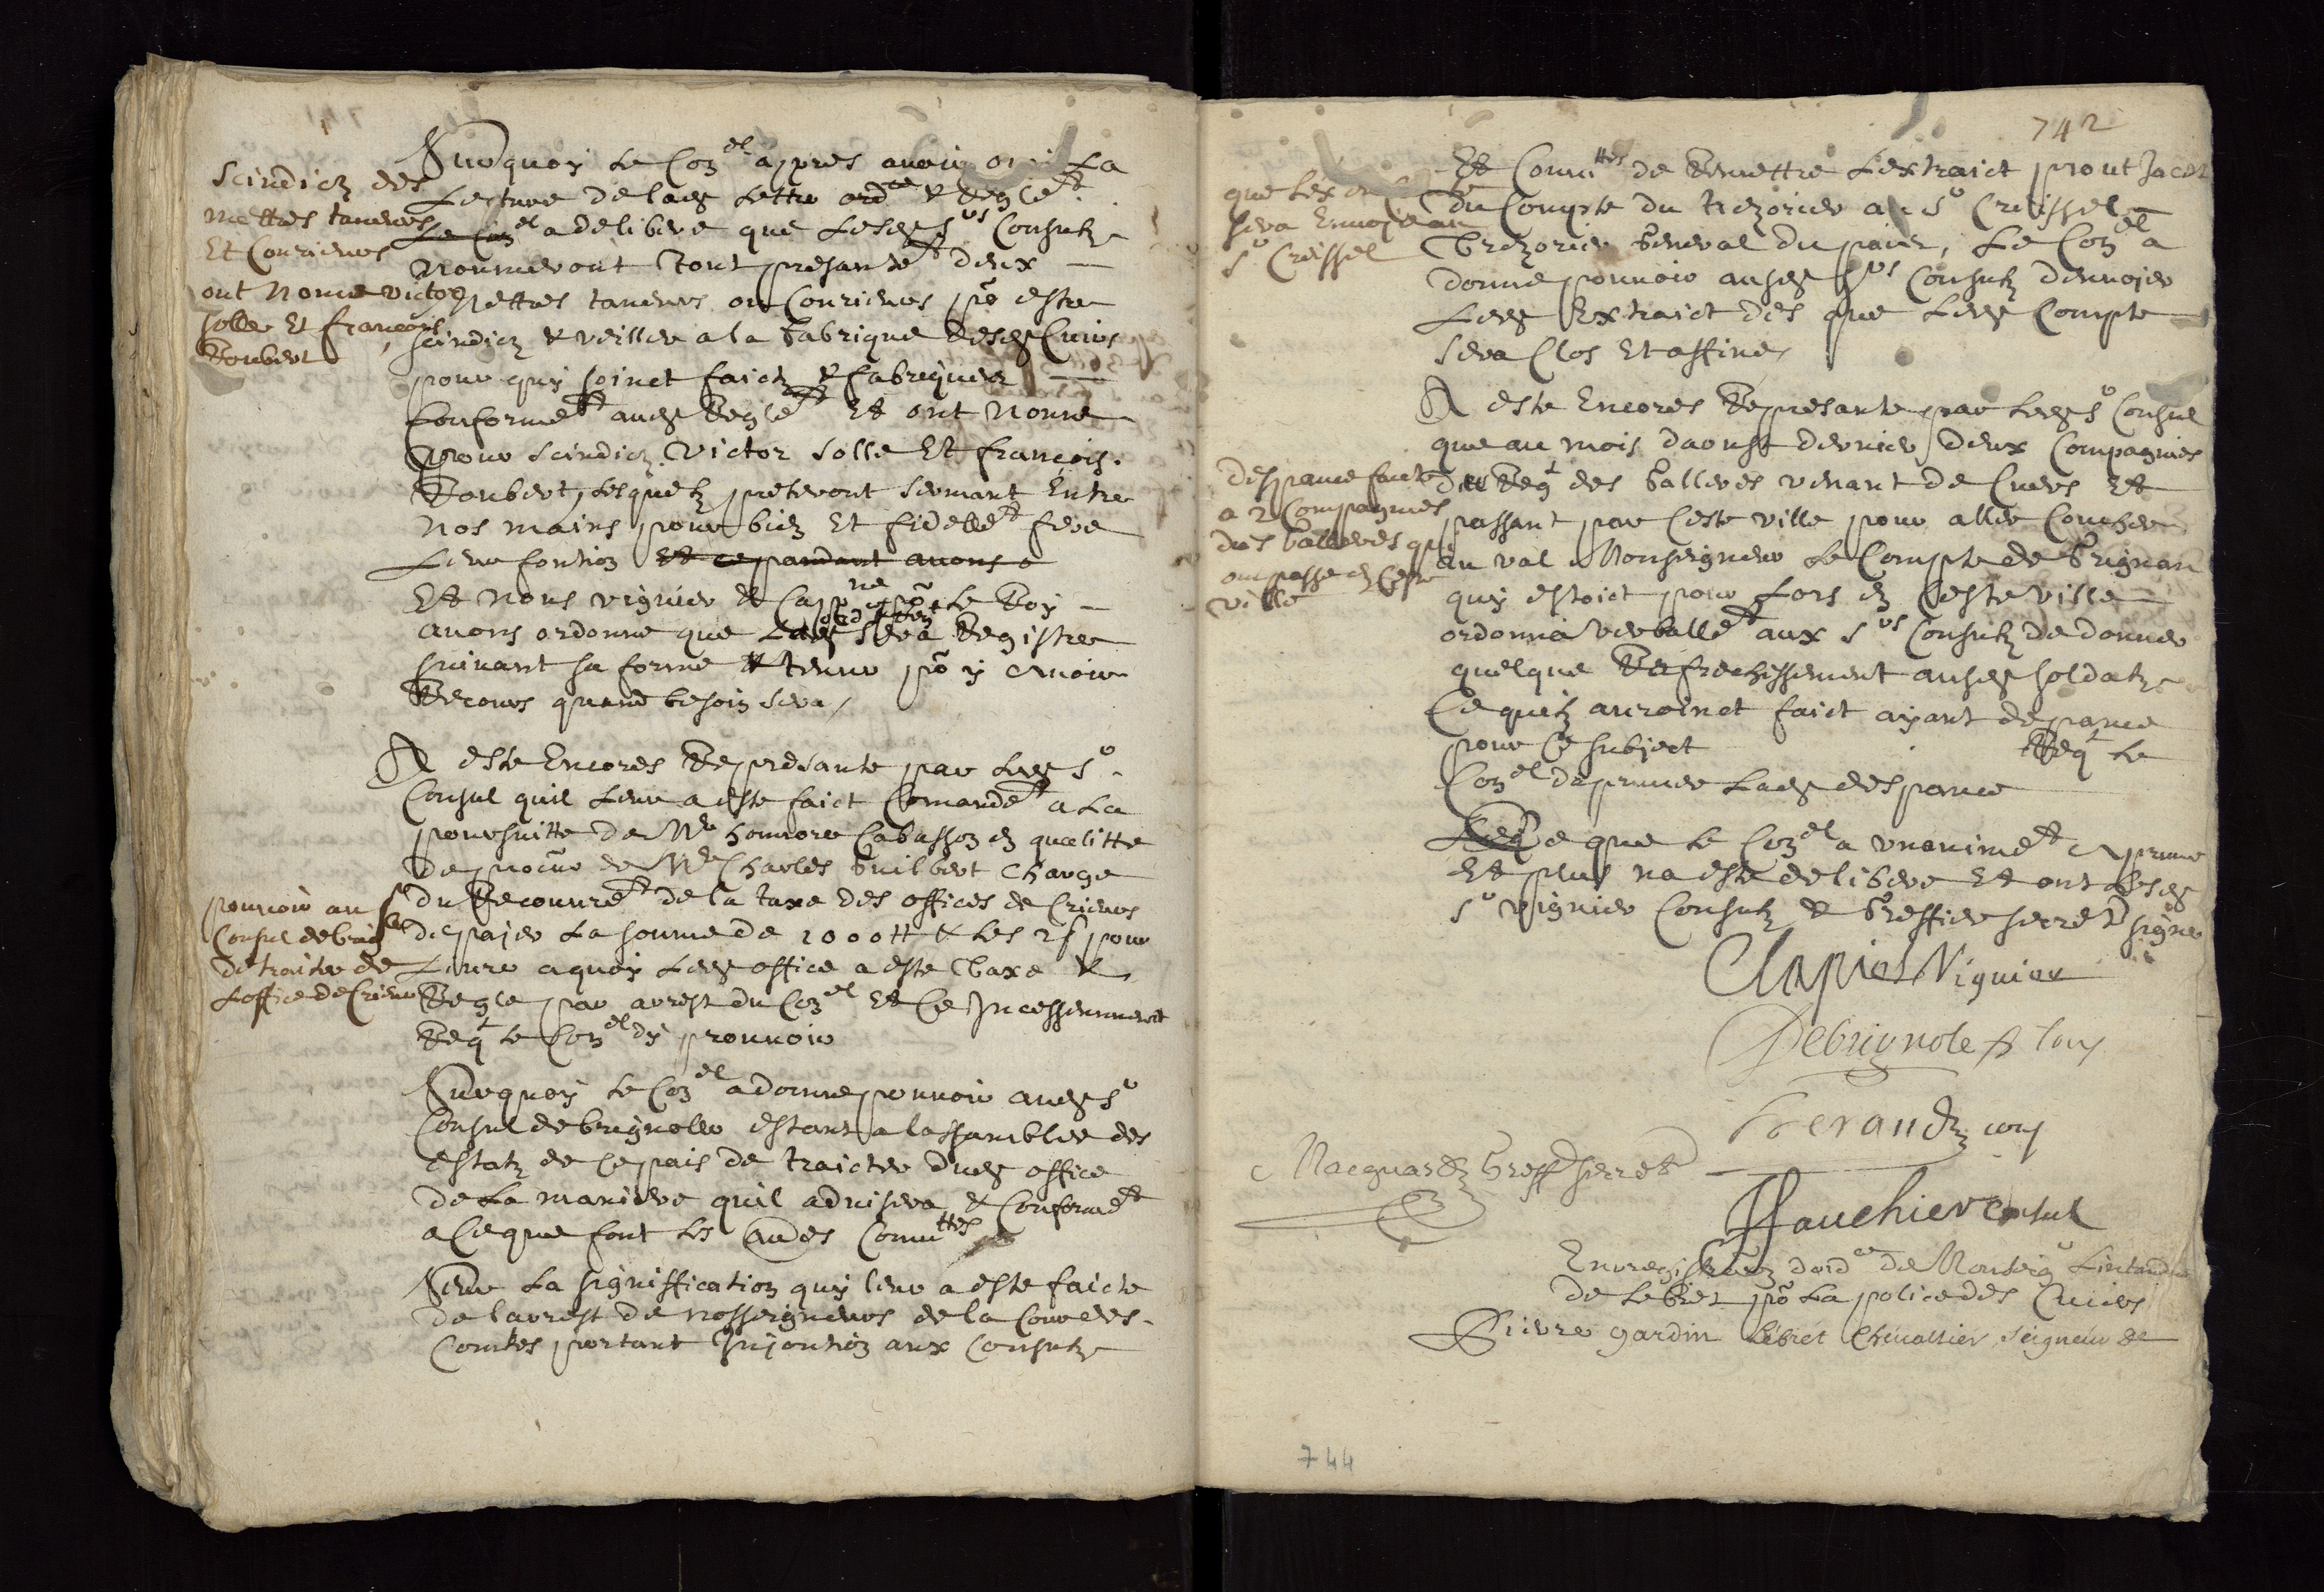 Scindicz des
mettres taneurs
Et Courieurs
ont nome victor
solle Et françois
Joubert
Surquoy Le Conel appres avoir oui La
Lecture de lad Lettre ordce & Reglet
Le Conel a delibere que Lesd srs Consulz
nommeront Tout presantet deux
mettres taneurs ou Courieurs po estre
scindicz & veiller a la fabrique desd Cuirs
pour quy soinct faictz & fabriques
Conformet aud Reglet Et ont nome
pour scindicz victor solle Et françois
Joubert, Lesquelz preteront sermant Entre
nos mains pour bien Et fidellet fere
Leur fontion Et cepandant avons o
Et nous viguier & Cappne po Le Roy
avons ordonne que Lad ordce & Reglet sera Registre
suivant sa forme & teneur po y avoir
Recours quand besoin sera /
A este Encores Represante par Led sr
Consul quil Leur a este faict Comandet a La
poursuitte de Me honnore Cabasson en qualitte
de procur de Me Charles Guilbert Charge
du Recouvret de la taxe des offices de Crieurs
pouvoir au sr
Consul de brig
de traiter de
Loffice de Crieur
de paier La somme de 1000 tt & Les 2 s pour
Livre a quoy Led office a este Taxe &
Regle par arrest du Conel Et Ce Incessemment
Reqt Le Conel dy prouvoir
Surquoy Le Conel a donne pouvoir aud sr
Consul de brignolle estant a lassamblee des
estatz de Ce pais de traicter dud office
de La maniere quil advisera & Conformet
a Ce que font Les autres Commttes
Sur La signiffication quy leur a este faicte
de larrest de nosseigneurs de la Cour des
Comtes portant Injontion aux Consulz
742
que Lex
sera Envoye au
sr Creissel
Et Commttes de Remettre Lextraict prout Jacet
du Compte du trezorier au sr Creissel
Trezorier General du pais, Le Conel a
donne pouvoir ausd srs Consulz denvoier
Led Extraict des que Led Compte
sera Clos Et affine /
A este Encores Represante par Led sr Consul
que au mois daoust dernier deux Compagnies
despance faicte
a 2 Compagnies
des Galleres qui
ont passe en Ceste
ville
du Regt des Galleres venant de Cuers Et
passant par Ceste ville pour aller Coucher
au val Monseigneur Le Compte de Grignan
quy estoict pour Lors en Ceste ville
ordonna verballet aux srs Consulz de donner
quelque Refrechissement ausd soldatz
Ce quilz auroinct faict aiyant depance
pour Ce subject Reqt Le
Conel dapruver Lad despance
Ce que Le Conel a unanimet apruve
Et plus na este delibere Et ont Lesd
sr viguier Consulz & Greffier secret signe
Clapier Viguier
Debrignole
Geraud
Macquard Greff secret
Fauchier Consul
Enregistran dord ce de Monseigr Lintendant
de Lebret po La police des Cuirs
Pierre Cardin Lebret Chevallier Seigneur de
744